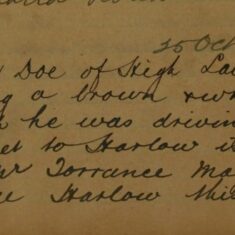 25 Oct
Doe of High La
a brown
he was drivin
et to Harlow i
Torrance Ma
Harlow this